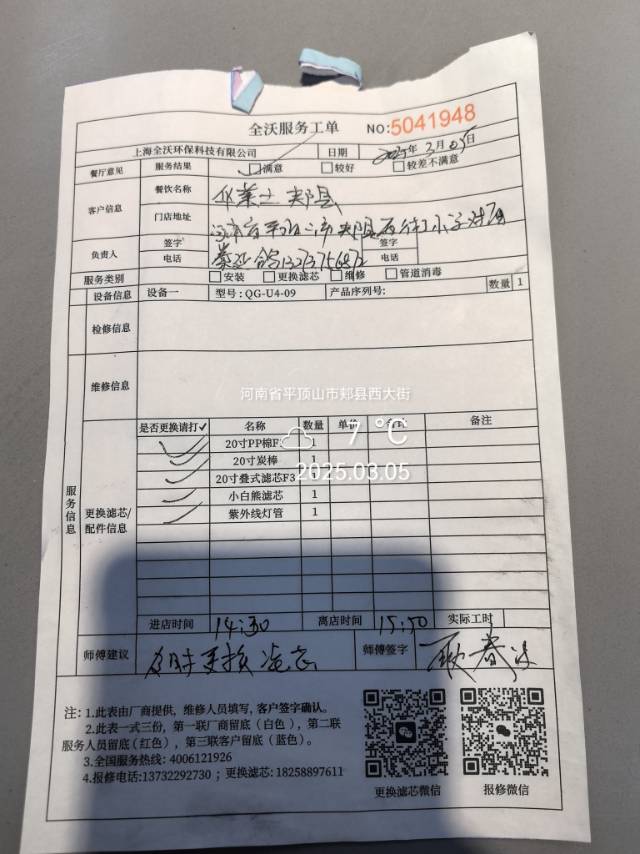 全沃服务工单 NO:5041948
上海全沃环保科技有限公司 日期 2025年3月05日
餐厅意见 服务结果 满意 较好 较差不满意
客户信息 餐饮名称 华莱士 郏县
门店地址 河南省平顶山市郏县西大街
负责人 签字 签字
电话 13273756872 电话
服务类别 安装 更换滤芯 维修 管道消毒
设备信息 设备一 型号: QG-U4-09 产品序列号: 数量 1
检修信息
维修信息
河南省平顶山市郏县西大街
服务信息
更换滤芯/配件信息
是否更换请打✓ 名称 数量 单价 备注
✓ 20寸PP棉F 1
✓ 20寸炭棒 1
✓ 20寸叠式滤芯F3 1
✓ 小白熊滤芯 1
✓ 紫外线灯管 1
7℃
2025.03.05
进店时间 14:30 离店时间 15:50 实际工时
师傅建议 及时更换滤芯 师傅签字
注: 1.此表由厂商提供, 维修人员填写, 客户签字确认。
2.此表一式三份, 第一联厂商留底(白色), 第二联
服务人员留底(红色), 第三联客户留底(蓝色)。
3.全国服务热线: 4006121926
4.报修电话:13732292730 ; 更换滤芯: 18258897611
更换滤芯微信 报修微信